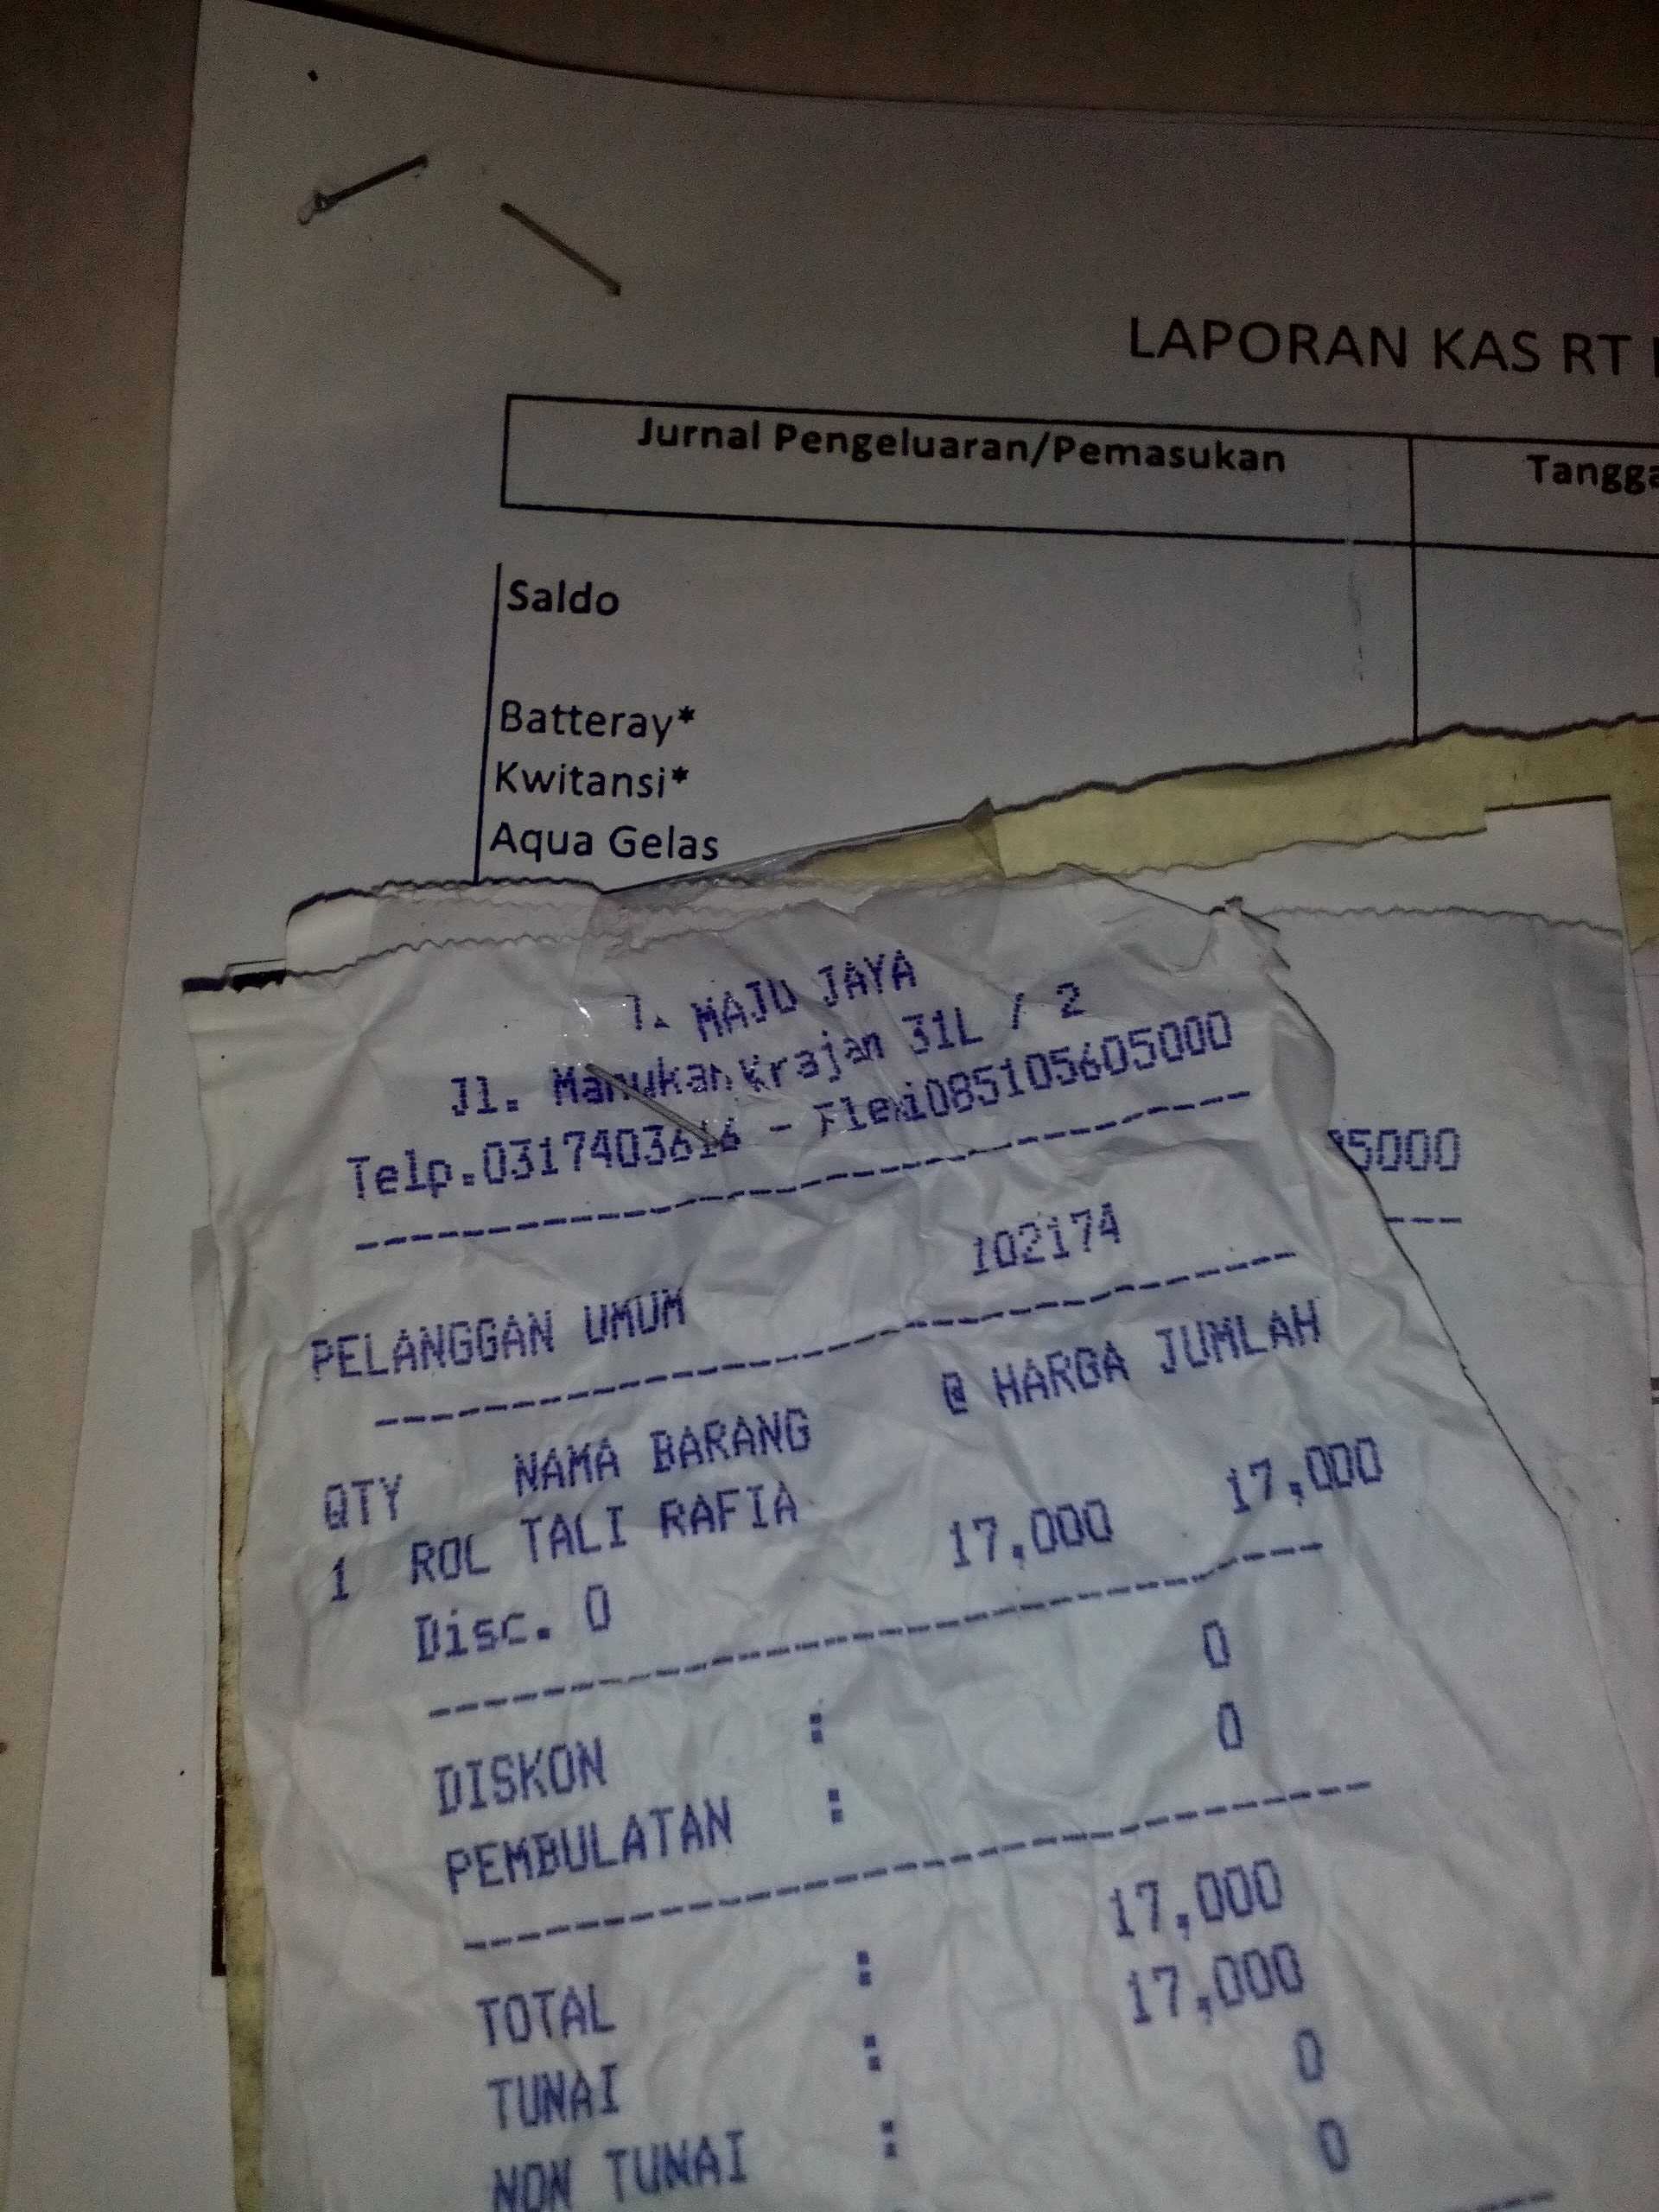 LAPORAN KAS RT
Jurnal Pengeluaran/Pemasukan Tangga
Saldo
Batteray*
Kwitansi*
Aqua Gelas
MAJU JAYA
Jl. Manukan Krajan 31L / 2
Telp.0317403616 - Flexi085105605000
5000
102174
PELANGGAN UMUM
QTY NAMA BARANG @ HARGA JUMLAH
1 ROL TALI RAFIA 17,000 17,000
Disc. 0
DISKON : 0
PEMBULATAN : 0
TOTAL : 17,000
TUNAI : 17,000
NON TUNAI : 0
0